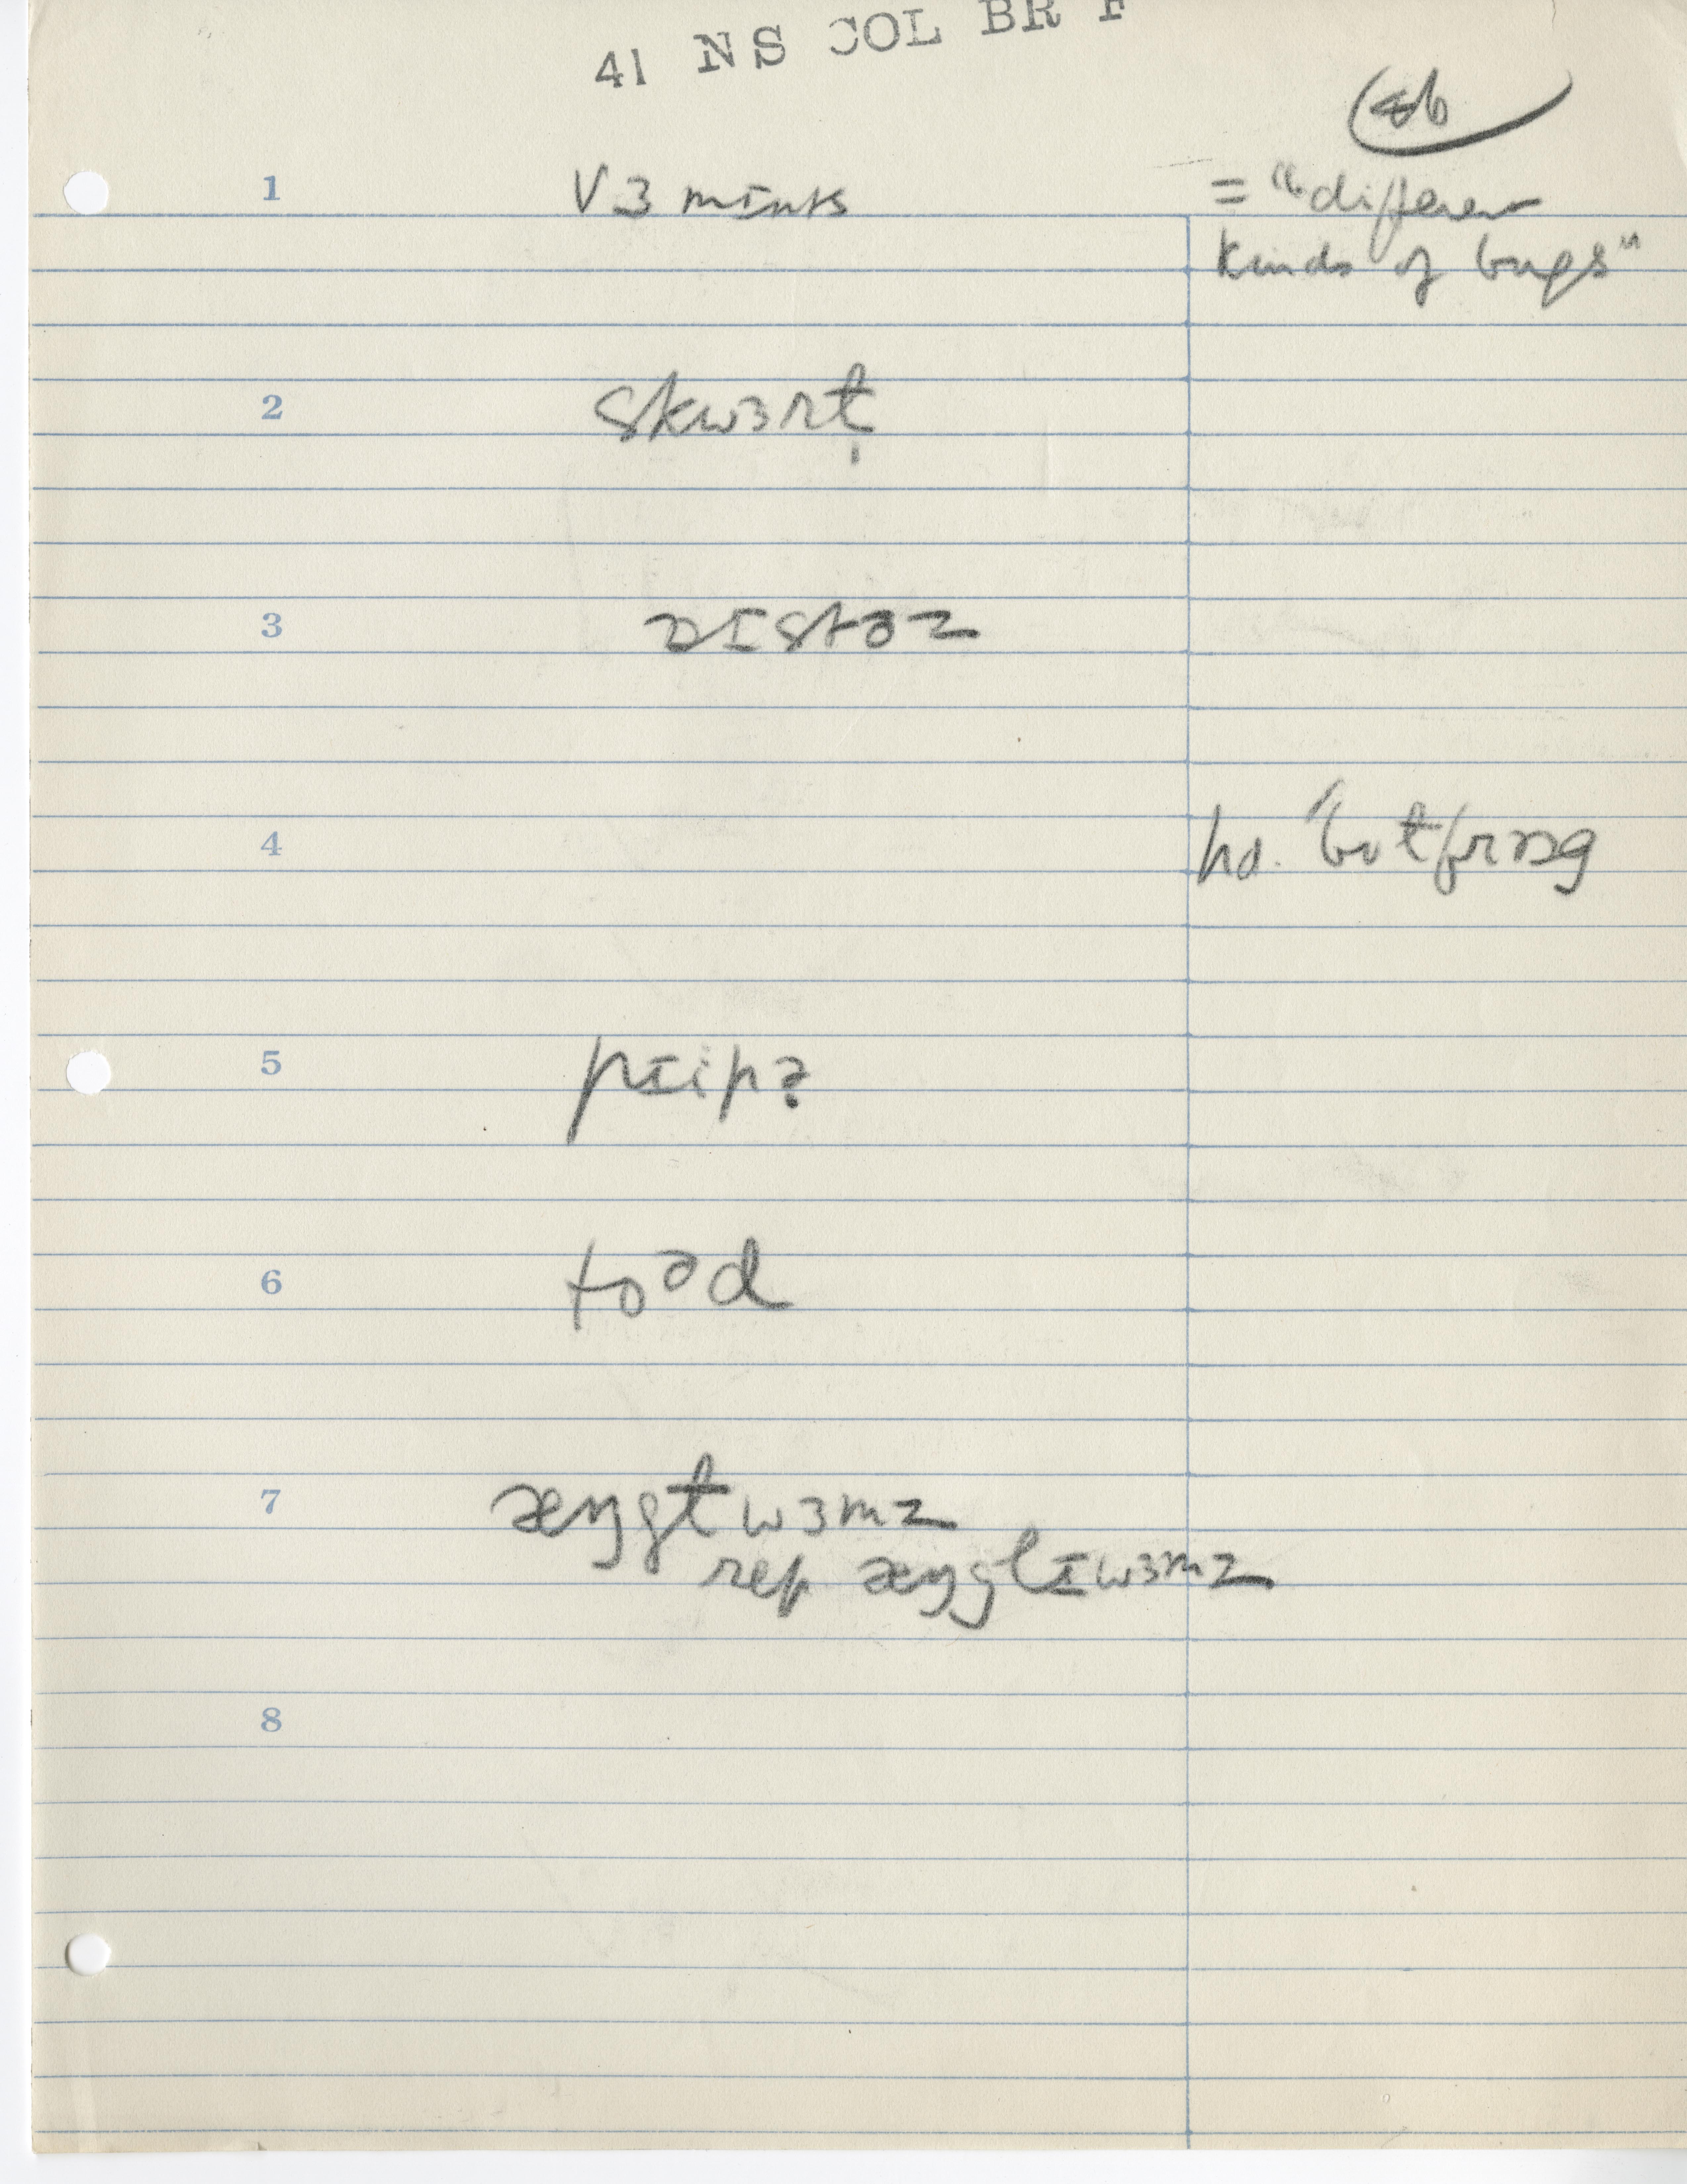 41 NS COL BR F
86
1 vɜmɪnts = "different
kinds of bugs"
2 skwɜrt̩
3 ɒɪstəz
4 hd. ˈbʊtfrɒg
5 pɪipə̣
6 toᵊd
7 æŋgtwɜmz
rep. æŋglɪwɜmz
8